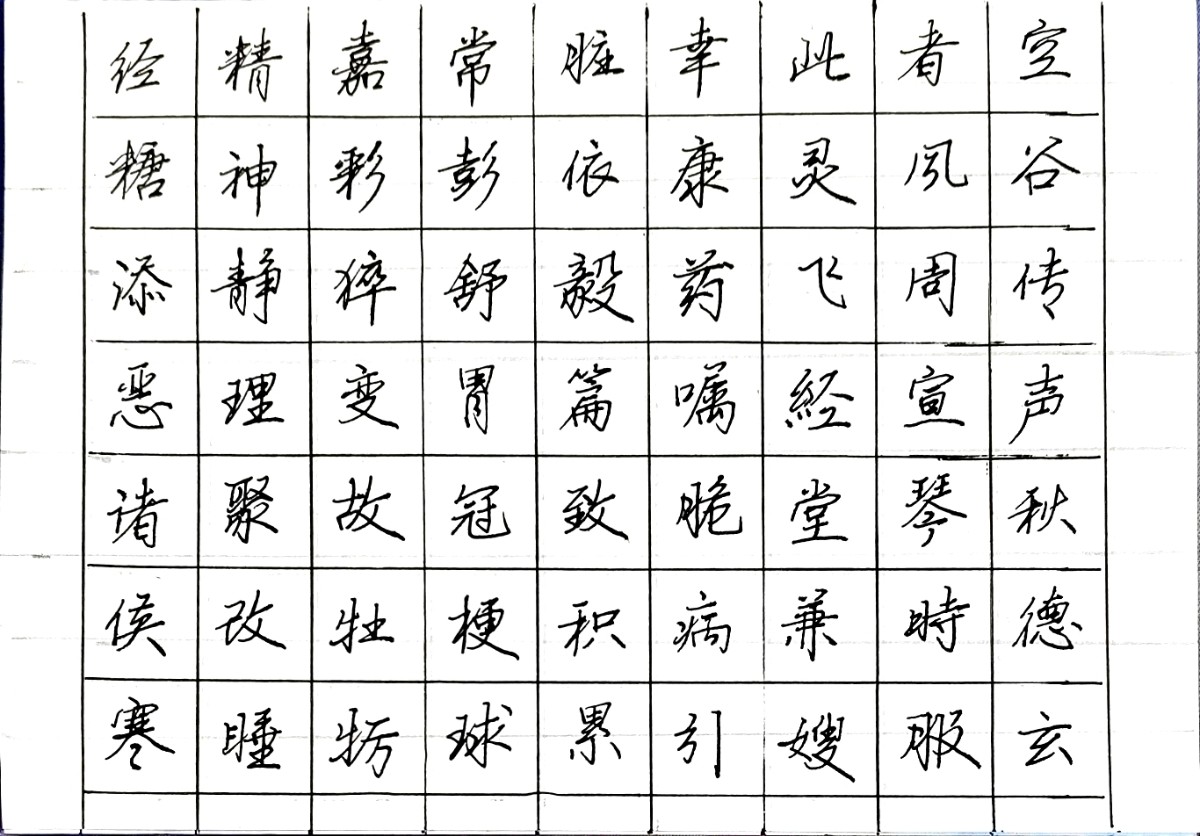 经精嘉常脏幸此者空
糖神彩彭依康灵风谷
添静猝舒毅药飞周传
恶理变胃篇嘱経宣声
诸聚故冠致脆堂琴秋
侯改牡梗积病兼時德
寒睡牞球累引嫂服玄